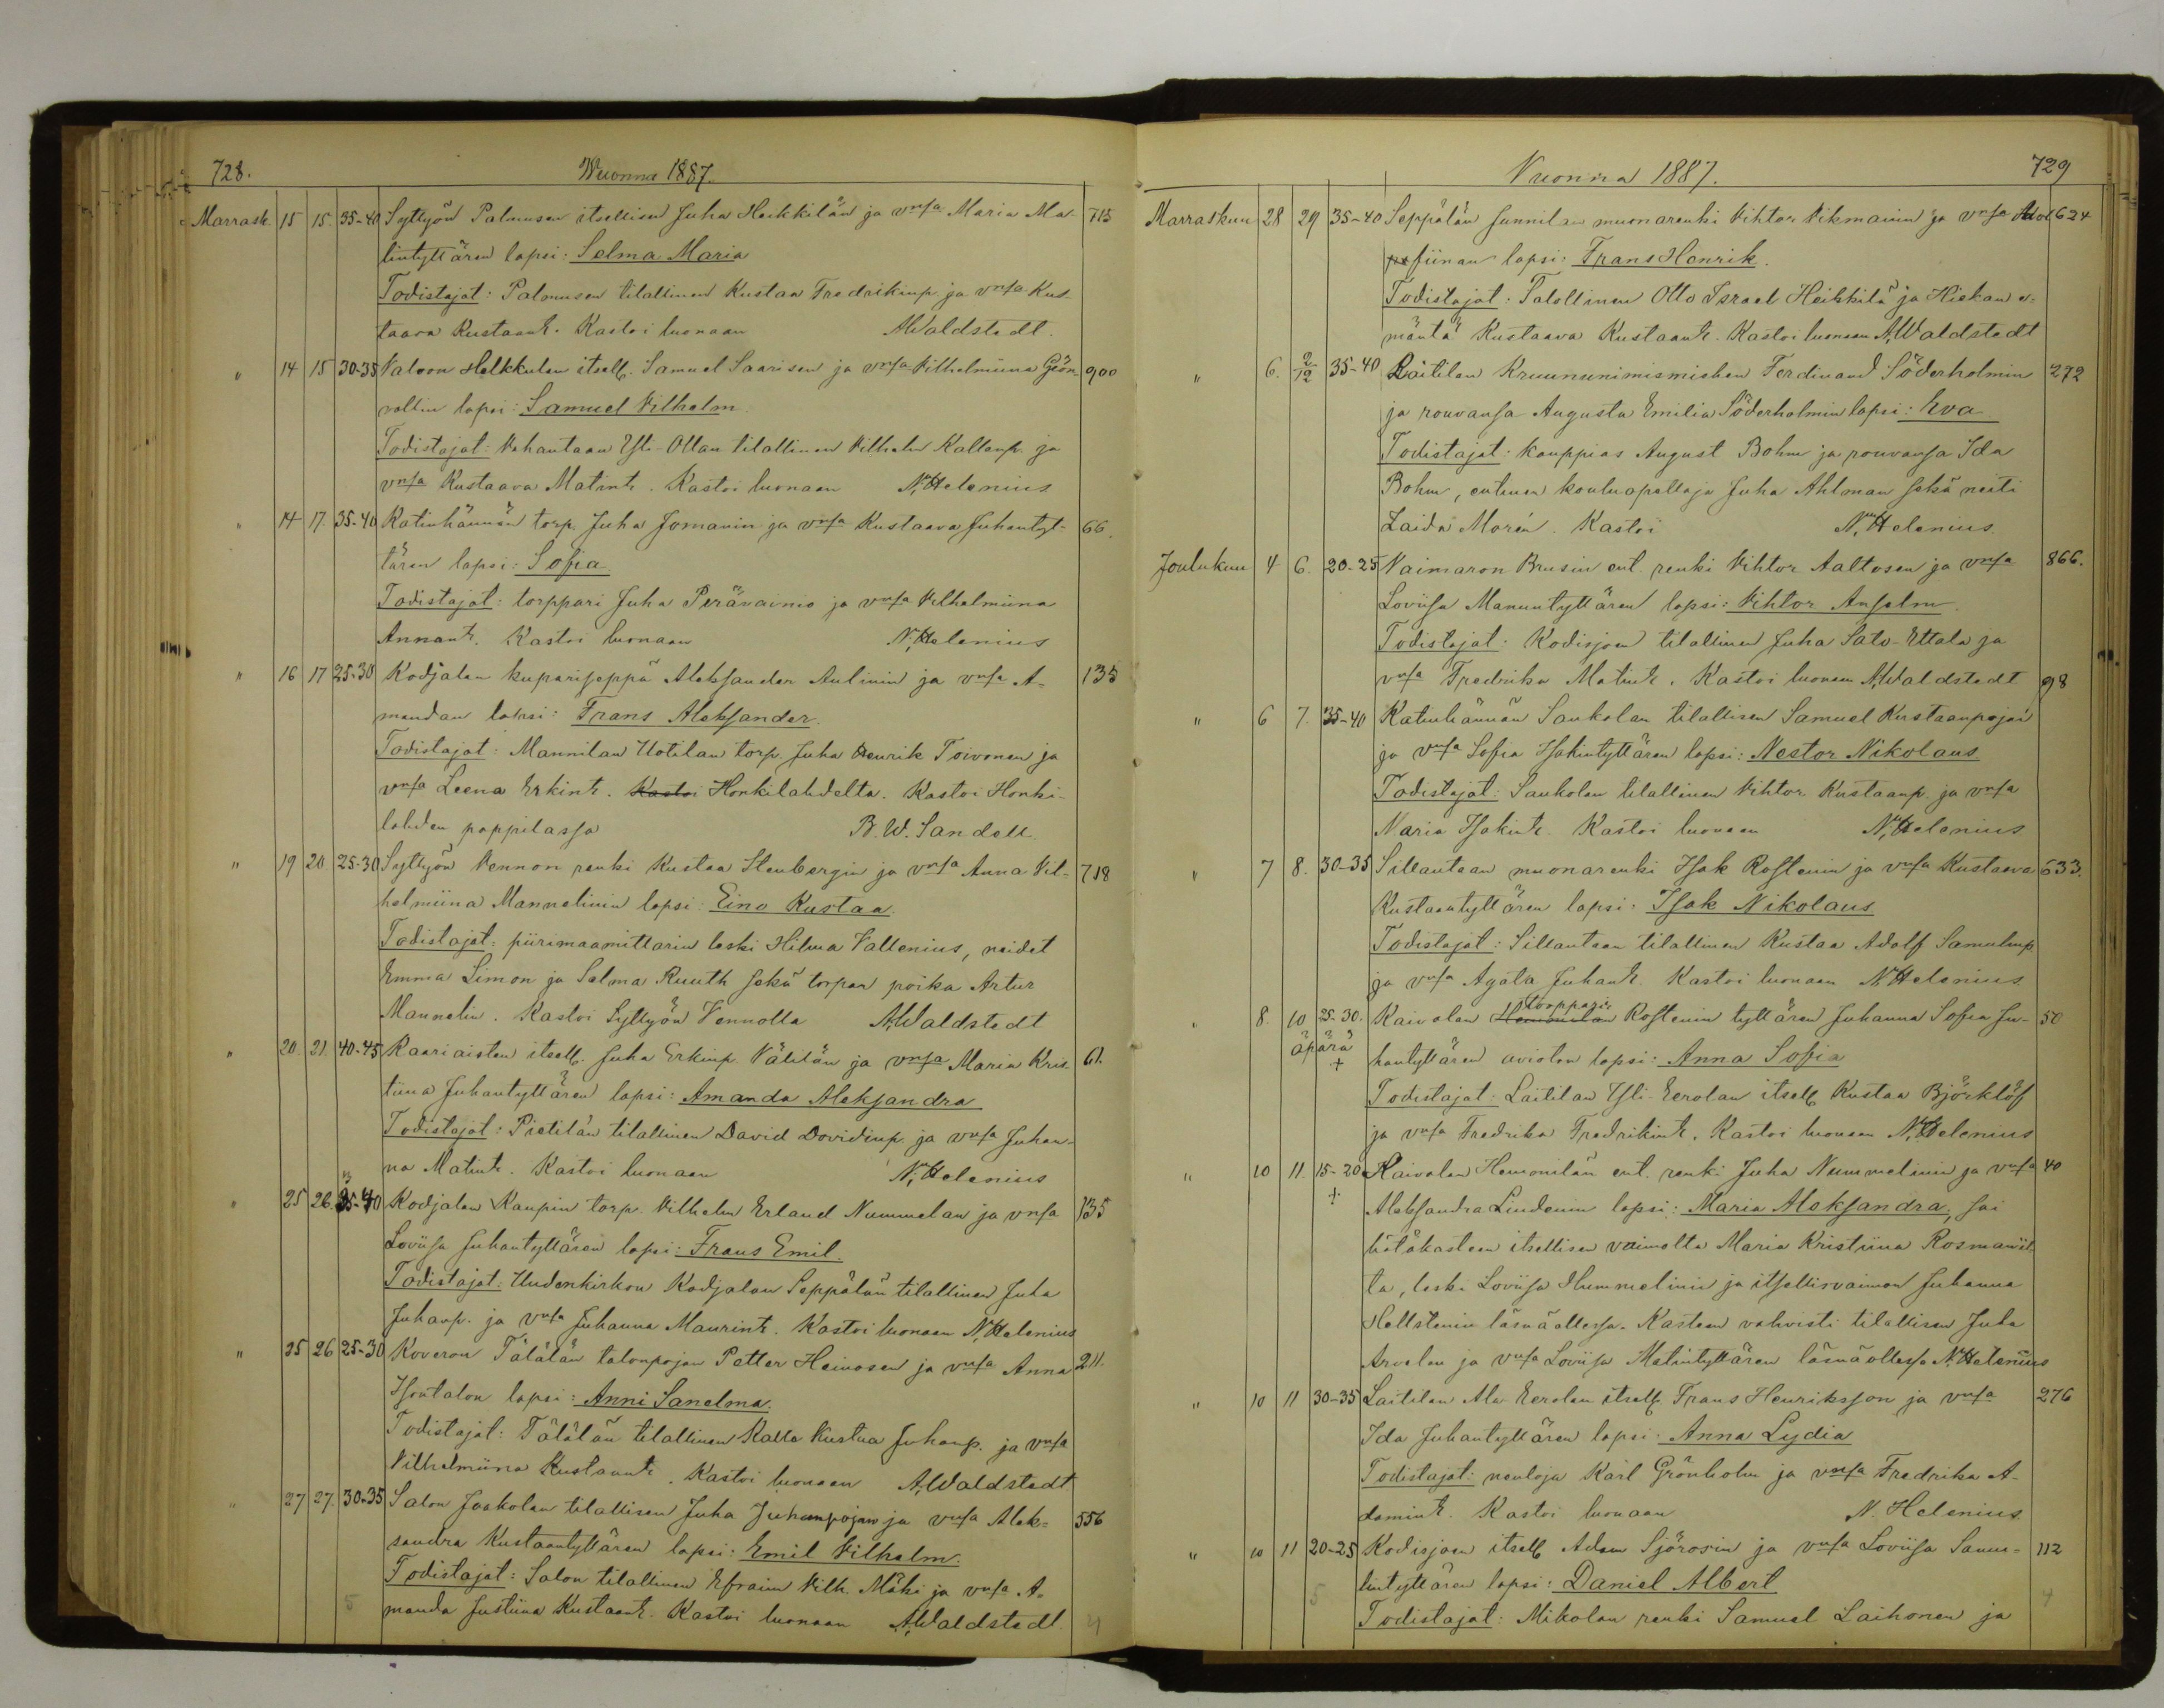 728. Wuonna 1887.
Marrask. 15 15. 35-40 Syttyön Palmusen itsellisen Juha Heikkilän ja vnsa Maria Ma- 715
lintyttären lapsi: Selma Maria
Todistajat: Palmusen tilallinen Kustaa Fredrikinp. ja vnsa Kus-
taava Kustaant. Kastoi luonaan A. Waldstedt.
" 14 15 30-35 Valoon Helkkulan itsell. Samuel Saarisen ja vnsa Vilhelmiina Grön- 900
vallin lapsi: Samuel Vilhelm
Todistajat: Vahantaan Yli-Ollan tilallinen Vilhelm Kallenp. ja
vnsa Kustaava Matint. Kastoi luonaan N. Helenius
" 14 17. 35-40 Katinhännän torp. Juha Jomanin ja vnsa Kustaava Juhantyt- 66.
tären lapsi: Sofia
Todistajat: torppari Juha Perävainio ja vnsa Vilhelmiina
Annant. Kastoi luonaan N. Helenius
" 16 17 25-30 Kodjalan kupariseppä Aleksander Aulinin ja vnsa A- 135
mandan lapsi: Frans Aleksander.
Todistajat: Mannilan Uotilan torp. Juha Henrik Toivonen ja
vnsa Leena Erkint. Kastoi Honkilahdelta. Kastoi Honki-
lahden pappilassa B. W. Sandell.
" 19 20 25-30 Syttyön Vennon renki Kustaa Stenbergin ja vnsa Anna Vil- 718
helmiina Mannelinin lapsi: Eino Kustaa.
Todistajat: piirimaamittarin leski Hilma Vallenius, neidet
Emma Limon ja Selma Ruuth sekä torpar poika Artur
Mannelin. Kastoi Syttyön Vennolla A. Waldstedt
" 20. 21. 40-45 Kaariaisten itsell. Juha Erkinp. Välilän ja vnsa Maria Kris- 61.
tiina Juhantyttären lapsi: Amanda Aleksandra
Todistajat: Pietilän tilallinen David Davidinp. ja vnsa Juhan-
na Matint. Kastoi luonaan N. Helenius
" 25 26. 35-40 Kodjalan Kaupin torp. Vilhelm Erland Nummelan ja vnsa 135
Loviisa Juhantyttären lapsi: Frans Emil.
Todistajat: Uudenkirkon Kodjalan Seppälän tilallinen Juha
Juhanp. ja vnsa Juhanna Maurint. Kastoi luonaan N. Helenius
" 25 26 25-30 Koveron Tälälän talonpojan Petter Heinosen ja vnsa Anna 211.
Isontalon lapsi: Anni Sanelma.
Todistajat: Tälälän tilallinen Kalle Kustaa Juhanp. ja vnsa
Vilhelmiina Kustaant. Kastoi luonaan A. Waldstedt
" 27 27. 30-35 Salon Jaakolan tilallisen Juha Juhanpojan ja vnsa Alek- 556
sandra Kustaantyttären lapsi: Emil Vilhelm.
Todistajat: Salon tilallinen Efraim Vilh. Mäki ja vnsa A-
manda Justiina Kustaant. Kastoi luonaan A. Waldstedt.
5 4
Vuonna 1887. 729
Marraskuu 28 29 35-40 Seppälän Junnilan muonarenki Vihtor Vikmanin ja vnsa Adol 624
fiinan lapsi: Frans Henrik.
Todistajat: Talollinen Otto Israel Heikkilä ja Hiekan e-
mäntä Kustaava Kustaant. Kastoi luonaan A. Waldstedt
" 6. 2/12 35-40 Laitilan Kruununimismiehen Ferdinand Söderholmin 272
ja rouvansa Augusta Emilia Söderholmin lapsi: Eva
Todistajat: kauppias August Bohm ja rouvansa Ida
Bohm, entinen kouluopettaja Juha Ahlman sekä neiti
Zaida Morén. Kastoi N. Helenius.
Joulukuu 4 6. 20-25 Vaimaron Brusin ent. renki Vihtor Aaltosen ja vnsa 866.
Loviisa Manuntyttären lapsi: Vihtor Anselm
Todistajat: Kodisjoen tilallinen Juha Sato-Ettala ja
vnsa Fredrika Matint. Kastoi luonaan A. Waldstedt
" 6 7. 35-40 Katinhännän Saukolan tilallisen Samuel Kustaanpojan 98
ja vnsa Sofia Isakintyttären lapsi: Nestor Nikolaus
Todistajat: Saukolan tilallinen Vihtor Kustaanp. ja vnsa
Maria Isakint. Kastoi luonaan N. Helenius
" 7 8. 30-35 Sillantaan muonarenki Isak Rostenin ja vnsa Kustaava 633.
Kustaantyttären lapsi: Isak Nikolaus
Todistajat: Sillantaan tilallinen Kustaa Adolf Samulinp.
ja vnsa Agata Juhant. Kastoi luonaan N. Helenius.
" 8. 10 25-30. Kaivolan torpparin Rostenin tyttären Juhanna Sofia Ju- 50
äpärä + hantyttären avioton lapsi: Anna Sofia
Todistajat: Laitilan Yli-Eerolan itsell. Kustaa Björklöf
ja vnsa Fredrika Fredrikint. Kastoi luonaan N. Helenius
" 10 11. 15-20 Kaivolan Hemonilan ent. renki Juha Nummelinin ja vnsa 40
+ Aleksandra Lindenin lapsi: Maria Aleksandra, sai
hätäkasteen itsellisen vaimolta Maria Kristiina Rosmanil-
ta, leski Loviisa Nummelinin ja itsellisvaimon Juhanna
Hellstenin läsnäollessa. Kasteen vahvisti tilallisen Juha
Arvelan ja vnsa Loviisa Matintyttären läsnäollessa N. Helenius
" 10 11 30-35 Laitilan Ala-Eerolan itsell. Frans Henriksson ja vnsa 276
Ida Juhantyttären lapsi: Anna Lydia
Todistajat: neuloja Karl Grönholm ja vnsa Fredrika A-
damint. Kastoi luonaan N. Helenius.
" 10 11 20-25 Kodisjoen itsell. Adam Sjörosin ja vnsa Loviisa Samu- 112
lintyttären lapsi: Daniel Albert
Todistajat: Mikolan renki Samuel Laihonen ja
5 4